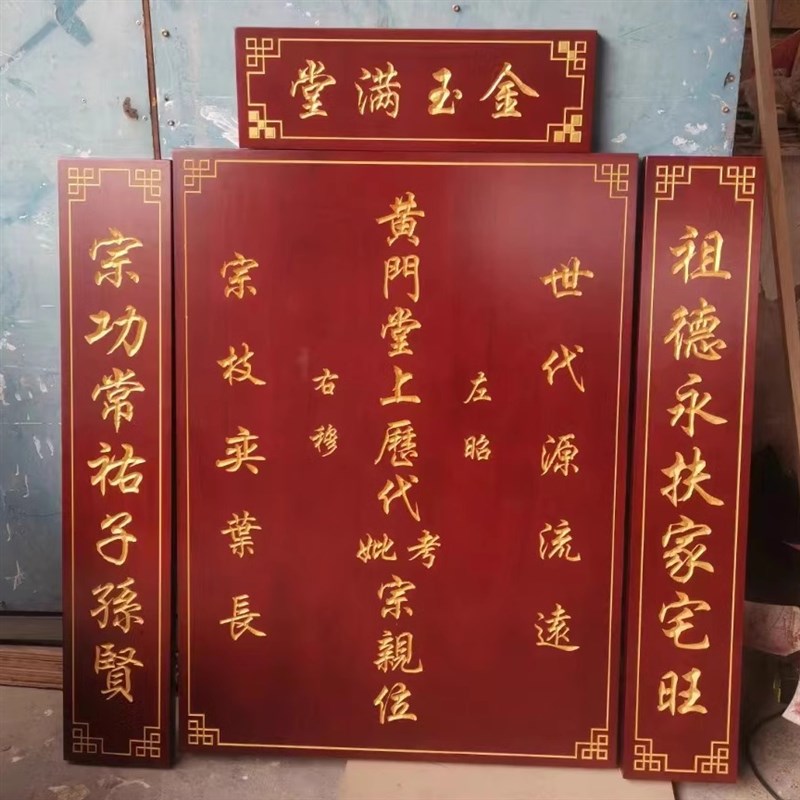 金玉满堂
祖德永扶家宅旺
世代源流遠
左昭
黄門堂上歷代考妣宗親位
右穆
宗枝奕葉長
宗功常祐子孫賢